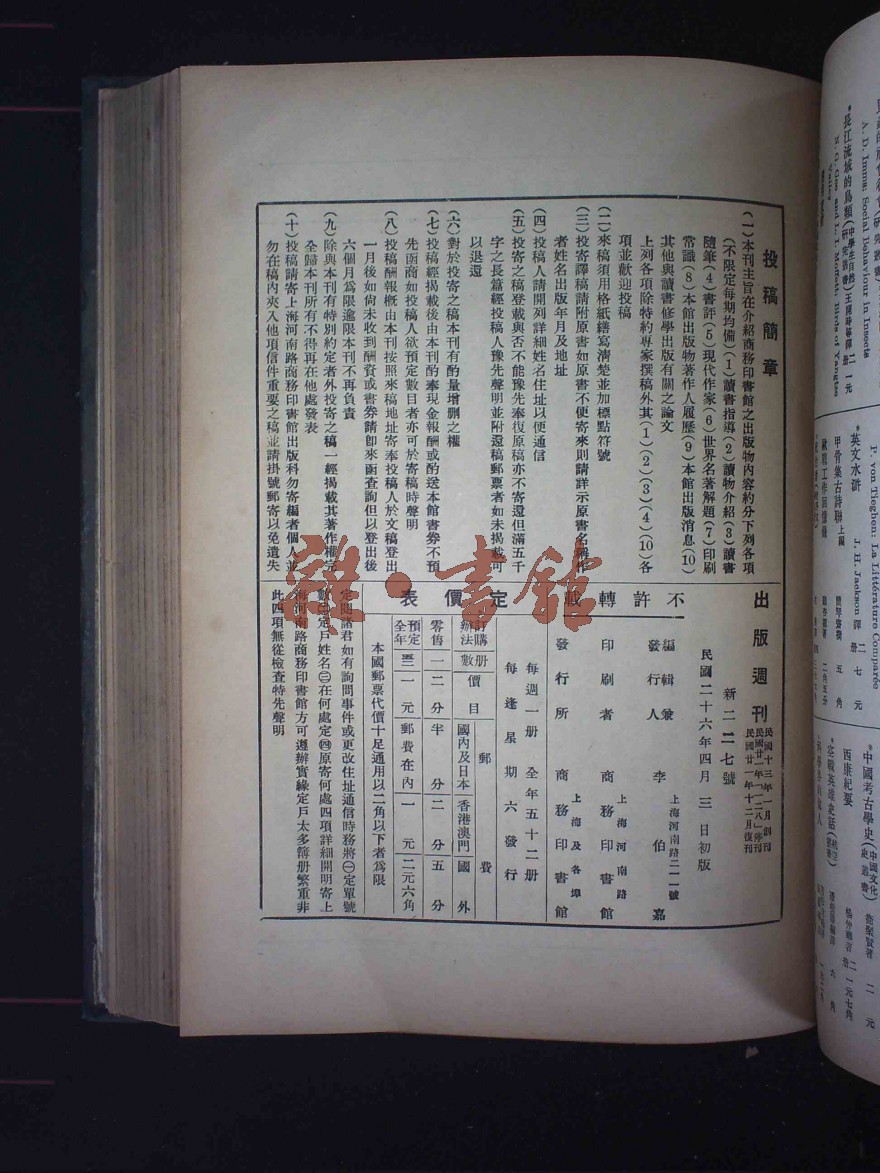 投稿簡章
(一)本刊主旨在介紹商務印書館之出版物內容約分下列各項
(不限定每期均備)(1)讀書指導(2)讀物介紹(3)讀書
隨筆(4)書評(5)現代作家(6)世界名著解題(7)印刷
常識(8)本館出版物著作人履歷(9)本館出版消息(10)
其他與讀書修學出版有關之論文
上列各項除特約專家撰稿外其(1)(2)(3)(4)(10)各
項並歡迎投稿
(二)來稿須用格紙繕寫清楚並加標點符號
(三)投寄譯稿請附原書如原書不便寄來則請詳示原書名稱作
者姓名出版年月及地址
(四)投稿人請開列詳細姓名住址以便通信
(五)投寄之稿登載與否不能豫先奉復原稿亦不寄還但滿五千
字之長篇經投稿人豫先聲明並附還稿郵票者如未揭載可
以退還
(六)對於投寄之稿本刊有酌量增删之權
(七)投稿經揭載後由本刊酌奉現金報酬或酌送本館書券不預
先函商如投稿人欲預定數目者亦可於寄稿時聲明
(八)投稿酬報概由本刊按照來稿地址寄奉投稿人於文稿登出
一月後如尙未收到酬資或書券請卽來函查詢但以登出後
六個月為限逾限本刊不再負責
(九)除與本刊有特別約定者外投寄之稿一經揭載其著作權完
全歸本刊所有不得再在他處發表
(十)投稿請寄上海河南路商務印書館出版科勿寄編者個人並
勿在稿內夾入他項信件重要之稿並請掛號郵寄以免遺失
出版週刊
民國十三年一月創刊
民國廿一年一二八停刊
民國廿一年十二月復刊
新二二七號
民國二十六年四月三日初版
不許轉載
編輯兼發行人 李伯嘉
上海河南路二一一號
印刷者 商務印書館
上海河南路
發行所 商務印書館
上海及各埠
定價表
每週一册 全年五十二册
每逢星期六發行
訂購辦法 册數 價目 郵費
國內及日本 香港澳門 國外
零售 一 二分 半分 二分 五分
預定全年 五二 一元 郵費在內 一元 二元六角
本國郵票代價十足通用以二角以下者為限
定閱諸君如有詢問事件或更改住址通信時務將㊀定單號
數㊁定戶姓名㊂在何處定㊃原寄何處四項詳細開明寄上
海河南路商務印書館方可遵辦實緣定戶太多簿册繁重非
此四項無從檢查特先聲明
A. D. Imms: Social Behaviour in Insects
*長江流域的鳥類
N. G. Gee and L. I. Moffett: Birds of Yangtse
Valley
P. von Tieghem: La Littérature Comparée
*英文水滸
J. H. Jackson 譯
甲骨集古詩聯上編
*中國考古學史(中國文化史叢書)
西康紀要
雜·書館